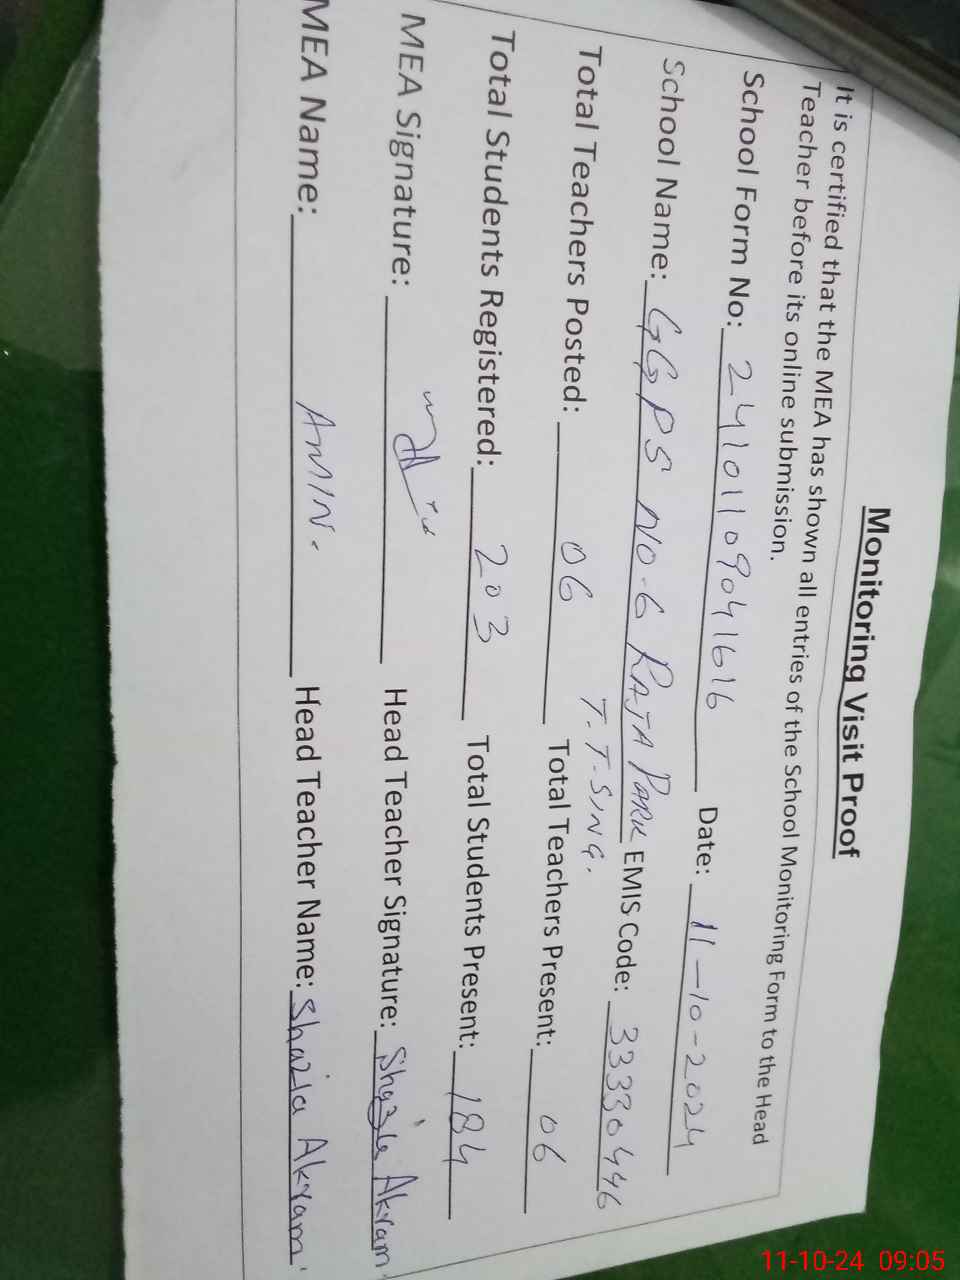 Monitoring Visit Proof
It is certified that the MEA has shown all entries of the School Monitoring Form to the Head
Teacher before its online submission.
School Form No: 24101109041616 Date: 11-10-2024
School Name: GGPS NO.6 RAJA PARK EMIS Code: 33330446
T.T.SING.
Total Teachers Posted: 06 Total Teachers Present: 06
Total Students Registered: 203 Total Students Present: 184
MEA Signature: Head Teacher Signature: Shazia Akram
MEA Name: AMIN. Head Teacher Name: Shazia Akram
11-10-24 09:05